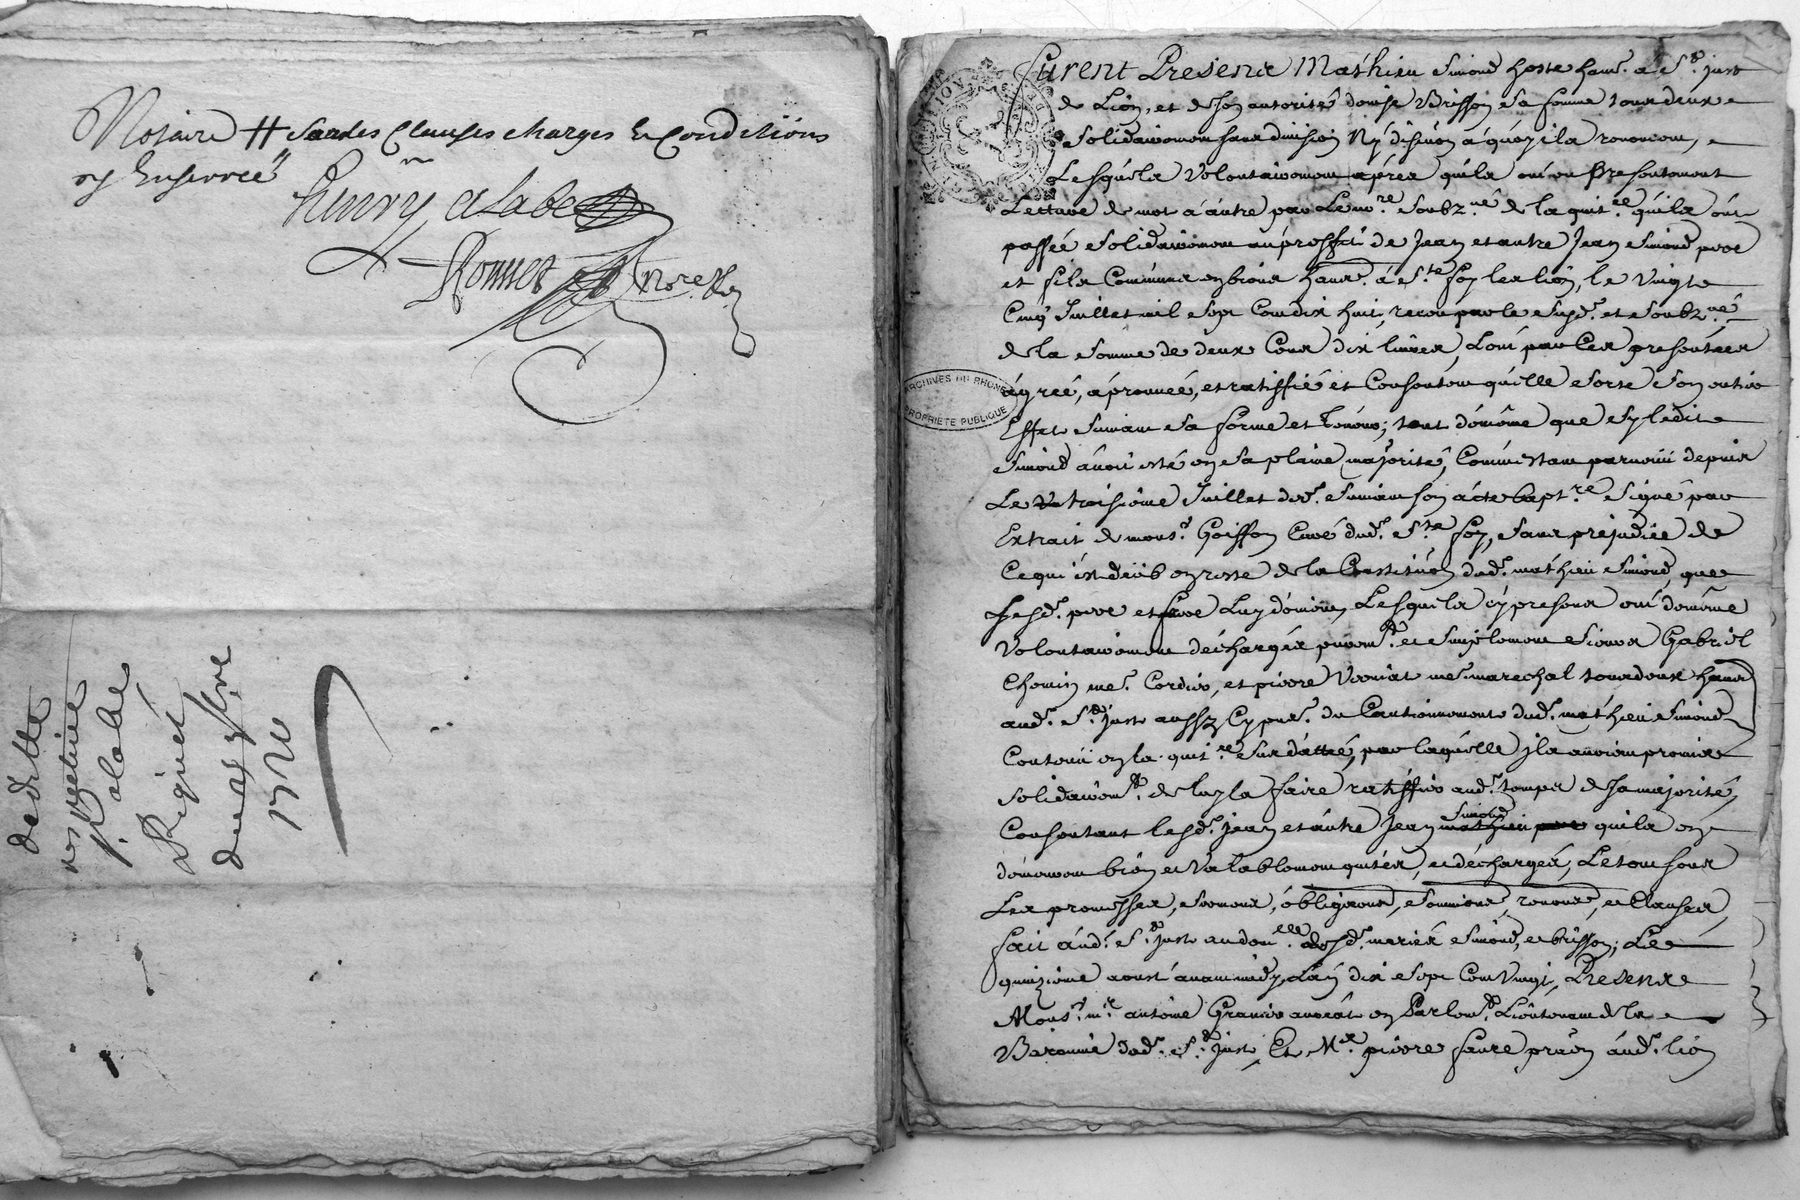 Notaire # Sardes Clauses charges & Conditiōns
y Inserrée
henry alabe
Ronnet
dedette
respective
P. alabe
Signet
du 25 7bre
1720
furent Presens Mathieu Simond hoste hant. a St. just
de Lion, et de son autorité donise Brisson sa femme tous deux
solidairement sans division Ny disiuon a quoy ils renoncent,
Lesquels Volontairement après quils ont eu Presentement
Lecture de mot a autre par Le nore. soubz.né de la quit.ce quils ont
passée solidairement au proffit de Jean et autre Jean Simond pere
et fils Communs en biens hants. a Ste foy les lion, le Vingt
Cinq Juillet mil sept Cent dix huit, receu par le susd. et soubz.né
de la somme de deux Cent dix livres, Lont par Ces presentes
agréé, aprouvée, et ratiffié et Consentent quelle sorte son entier
Effet suivant sa forme et teneur; tout de même que sy ledit
Simond avoit esté en sa plaine majorité, Comme estant parvenu depuis
Le troisième Juillet der. suivant son acte bapt.re signé par
Extrait de mons.r Goiffon Curé dud. Ste foy, sans prejudice de
Cequi est deüb en reste de la Constituōn dud. mathieu Simond, que
Lesd. pere et frere Luy doivent, Lesquels cy presens ont de même
Volontairement dechargés purem.t et simplement sieurs Gabriel
Chomin me. Cordier, et pierre Verniat me. marechal tous deux hants
aud. St. just aussy Cy pnts. du Cautionnement dud. mathieu Simond
Contenu en la quit.ce sus dattée, par laquelle jls avoient promis
solidairem.t de luy la faire ratiffier aud. temps de sa majorité,
Consentant lesd. jean et autre Jean Simond quils en
demeurent bien et Valablement quittes, et dechargés, Le tout sous
Les promesses, sermens, obligaons, soumions, renons, et Clauses,
fait aud. St. just au dom.lle desd. mariés Simond, et brisson; Le
quinzieme aoust avant midy, L'an dix sept Cent Vingt, Presens
Mons.r m.e antoine Granier avocat en Parlem.t Lieutenant de la
Baronnie dud. St. just, Et Me. pierre faure praēn aud. lion
ARCHIVES DU RHONE
PROPRIETE PUBLIQUE